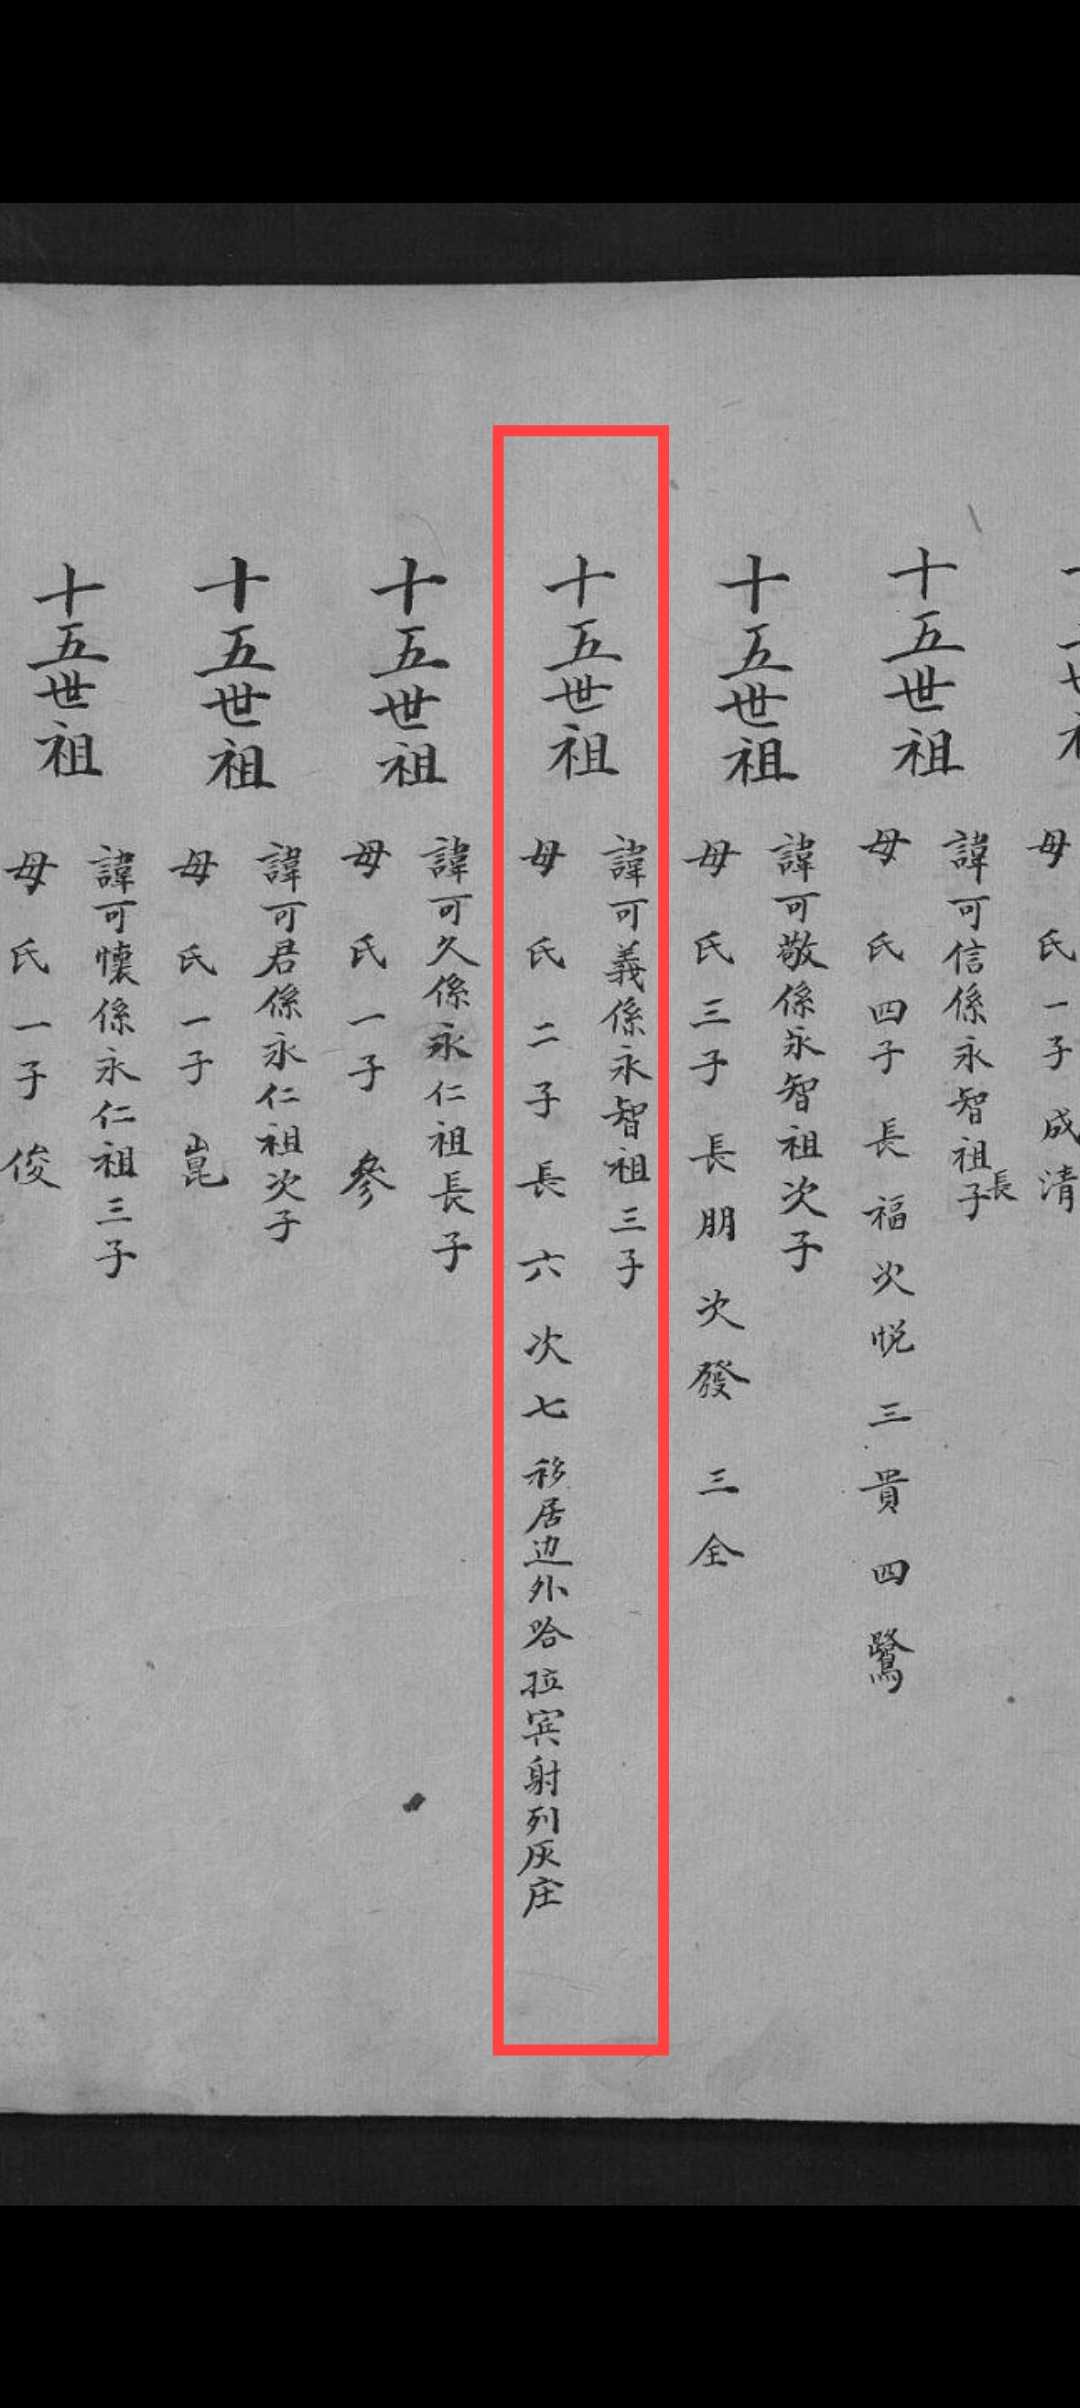 母氏一子成清
十五世祖
諱可信係永智祖長子
母氏四子長福次悦三貴四鷺
十五世祖
諱可敬係永智祖次子
母氏三子長朋次發三全
十五世祖
諱可義係永智祖三子
母氏二子長六次七移居边外哈拉宾射列灰庄
十五世祖
諱可久係永仁祖長子
母氏一子參
十五世祖
諱可君係永仁祖次子
母氏一子崑
十五世祖
諱可懷係永仁祖三子
母氏一子俊